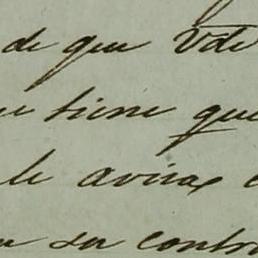 de que Vde
tiene que
le avisa
su contr